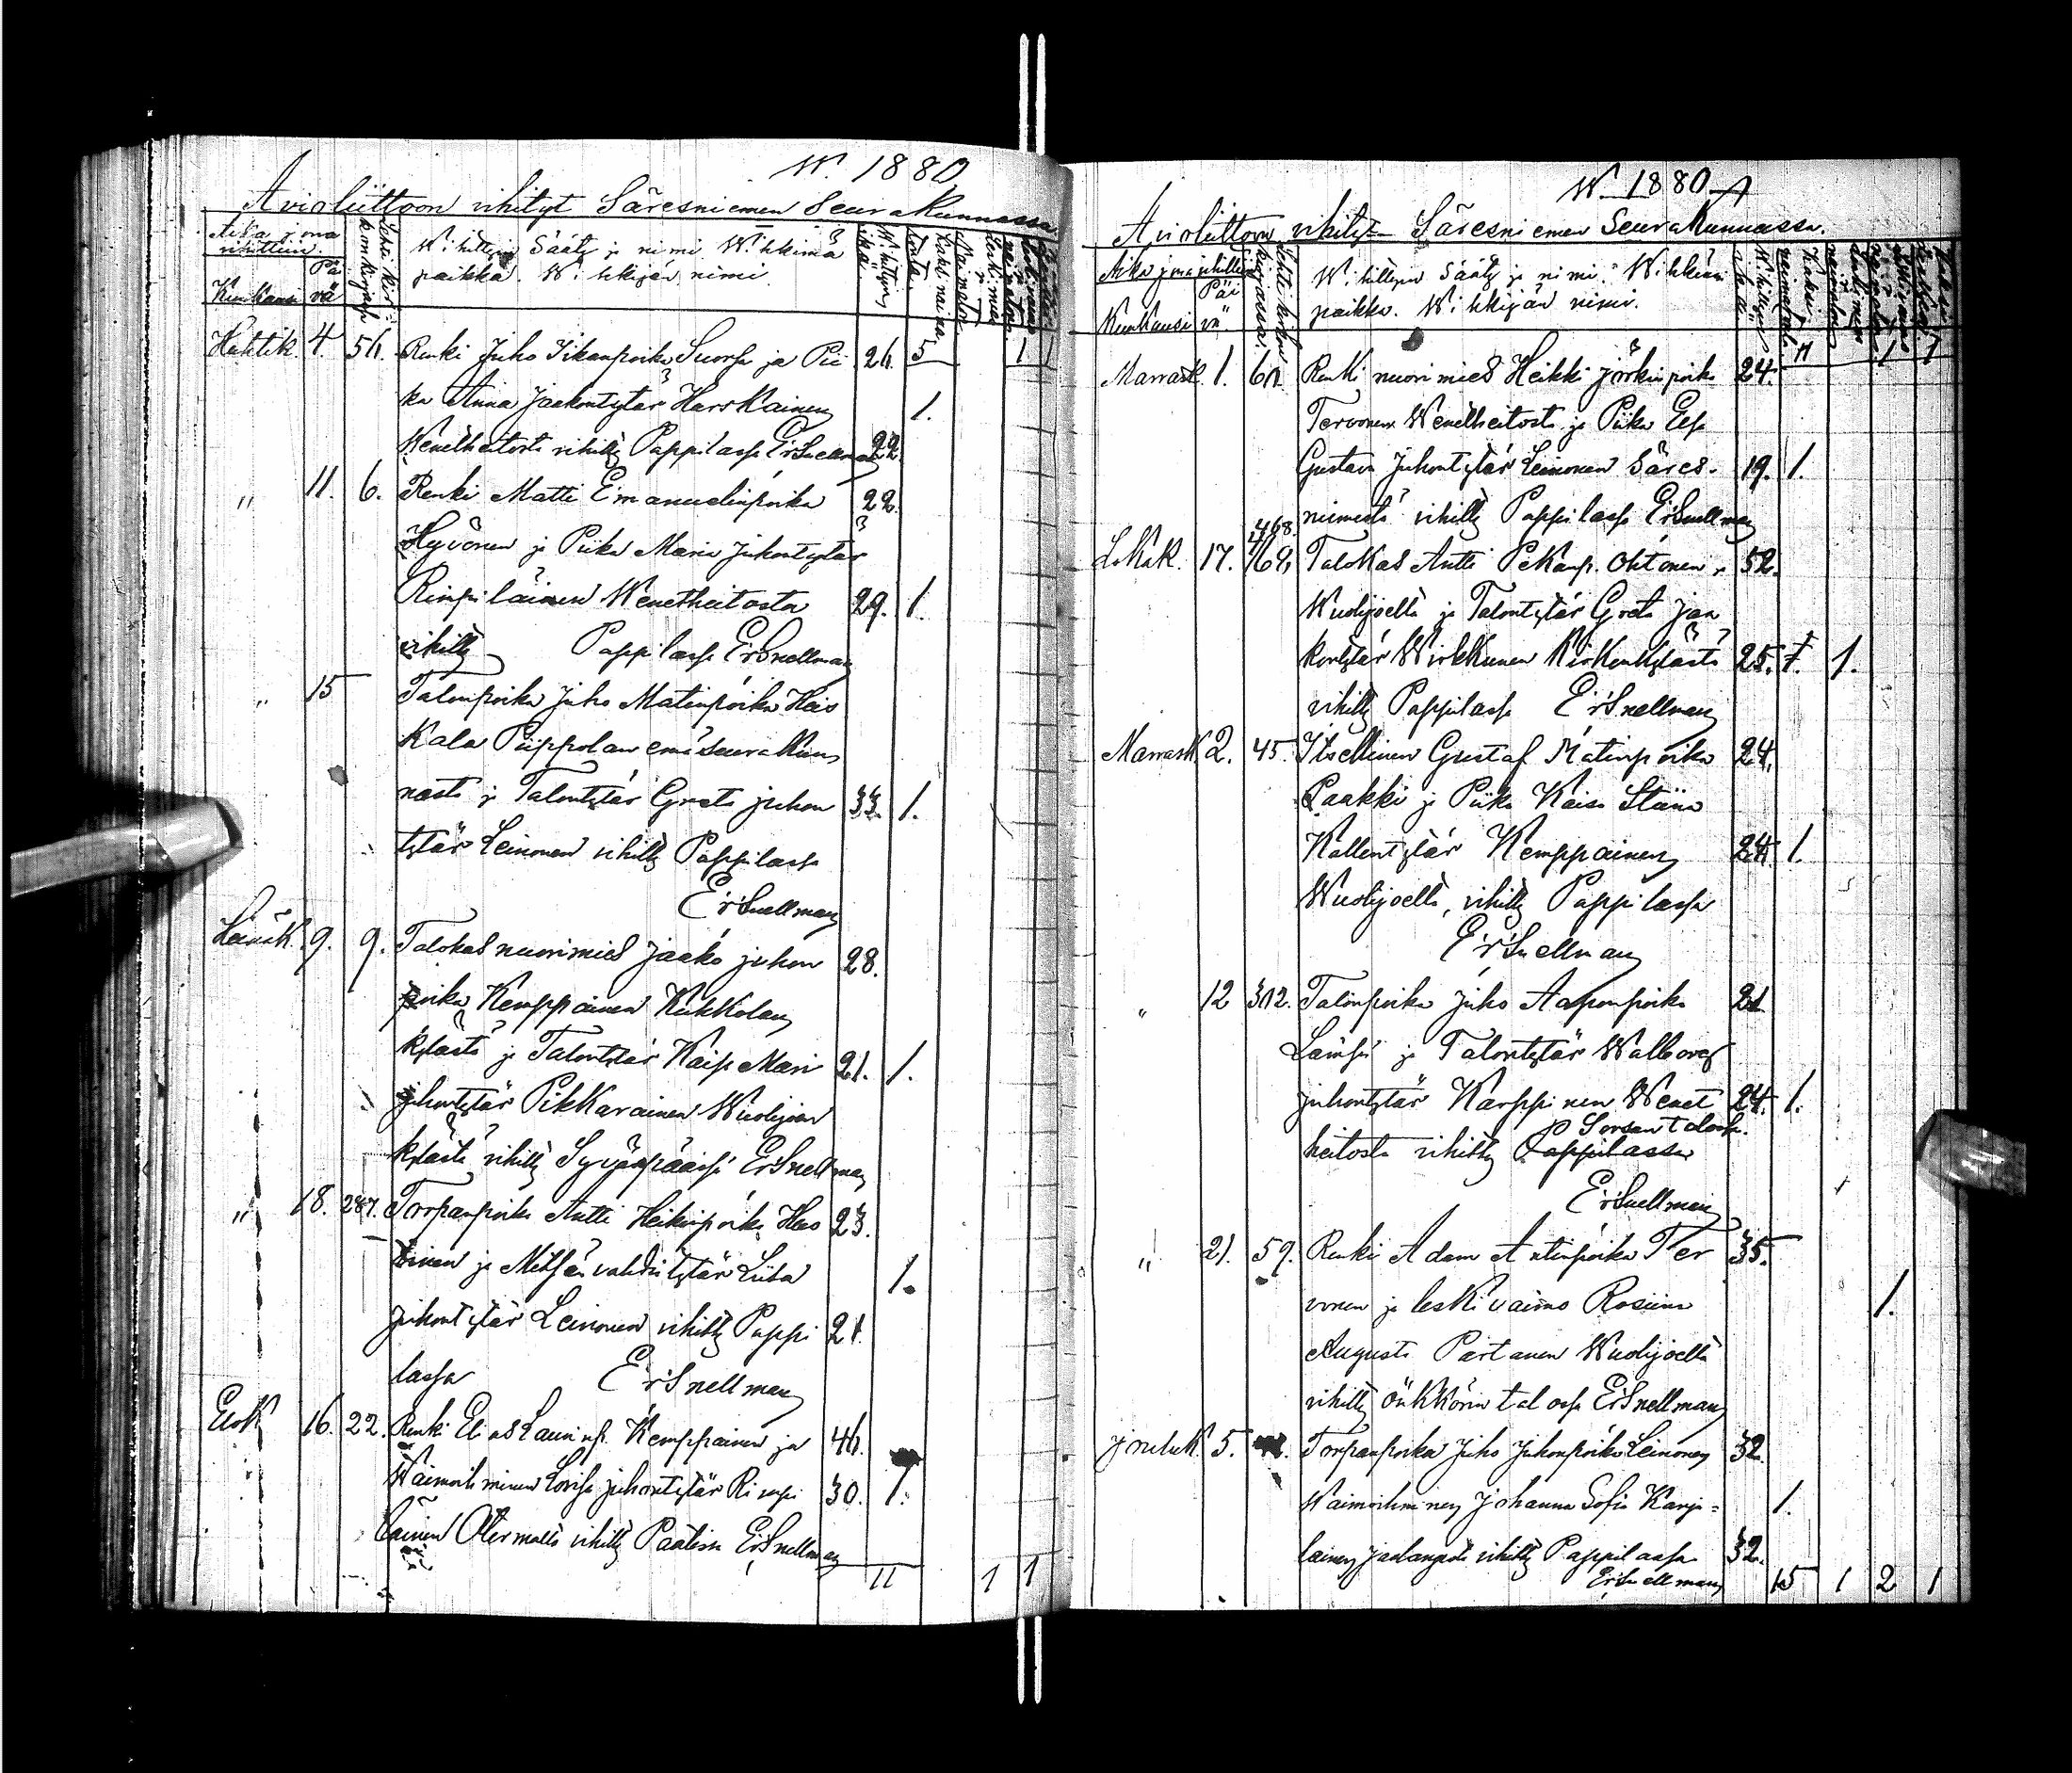 W. 1880
Avioliittoon vihityt Säresniemen Seurakunnassa
Aika jona vihittiin.
Kuukausi Päivä
Wihittyin Sääty ja nimi Wihkimä
paikka. Wihkijän nimi
Huhtik. 4. 56. Renki Juho Iikanpoika Suorsa ja Pii 26. 5 1 1
ka Anna Jaakontytär Harskainen 1.
Wenetheitosta vihitty Pappilassa ErSnellman 22.
" 11. 6. Renki Matti Emanuelinpoika 22.
Hyvönen ja Piika Maria Juhontytär
Rimpiläinen Wenetheitosta 29. 1.
vihitty Pappilassa ErSnellman
" 15 Talonpoika Juho Matinpoika Heis
kala Piippolan emäseurakun
nasta ja Talontytär Greta juhon 33. 1.
tytär Leinonen vihitty Pappilassa
ErSnellman
Kesäk. 9. 9. Talokas nuorimies Jaako juhon 28.
poika Kemppainen Kukkolan
kylästä ja Talontytär Kaisa Mari 21. 1.
juhontytär Pikkarainen Wuolijoen
kylästä vihitty Syväspäässä ErSnellman
" 18. 287. Torpanpoika Antti Heikinpoika Hei 23.
kinen ja Metsänvahdintytär Liisa 1.
Juhontytär Leinonen vihitty Pappi 21.
lassa ErSnellman
Elok 16. 22. Renki Elias Laurinp. Kemppainen ja 46.
Waimoihminen Lovisa juhontytär Rimpi 30. 1.
läinen Otermalta vihitty Paatissa ErSnellman
11 1 1
W. 1880
Avioliittoon vihityt Säresniemen Seurakunnassa.
Aika jona vihittiin
Kuukausi Päivä
Wihittyin Sääty ja nimi Wihkimä
paikka. Wihkijän nimi.
11 1 1
Marrask. 1. 61. Renki nuorimies Heikki Jörkinpoika 24.
Tervonen Wenetheitosta ja Piika Elsa
Gustava Juhontytär Leinonen Säres- 19. 1.
niemestä vihitty Pappilassa ErSnellman
468.
Lokak. 17. 169. Talokas Antti Pekanp. Ohtonen 52.
Wuolijoelta ja Talontytär Greta Jaa
kontytär Wirkkunen Kirkonkylästä 25. 1.
vihitty Pappilassa ErSnellman
Marrask. 2. 45. Itsellinen Gustaf Matinpoika 24.
Paakki ja Piika Kaisa Stiina
Kallentytär Kemppainen 24. 1.
Wuolijoelta, vihitty Pappilassa
ErSnellman
" 12 312. Talonpoika Juho Aaponpoika 21
Lämsä ja Talontytär Walborg
juhontytär Karppinen Wenet 24. 1.
Sorsan talossa.
heitosta vihitty Pappilassa
ErSnellman
" 21. 59. Renki Adam Antinpoika Ter 35.
vonen ja leskivaimo Rosiina 1.
Augusta Partanen Wuolijoelta
vihitty Oukkorin talossa ErSnellman
Jouluk. 5. Torpanpoika Juho Juhonpoika Leinonen 32.
Waimoihminen Johanna Sofia Karja- 1.
lainen vihitty Pappilassa 32.
ErSnellman
15 1 2 1